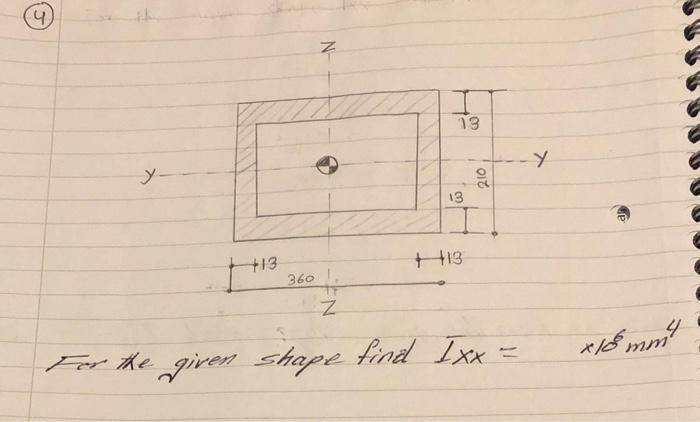 4
Z
13
Y
Y
210
13
13
13
360
Z
For the given shape find Ixx = x10⁶ mm⁴